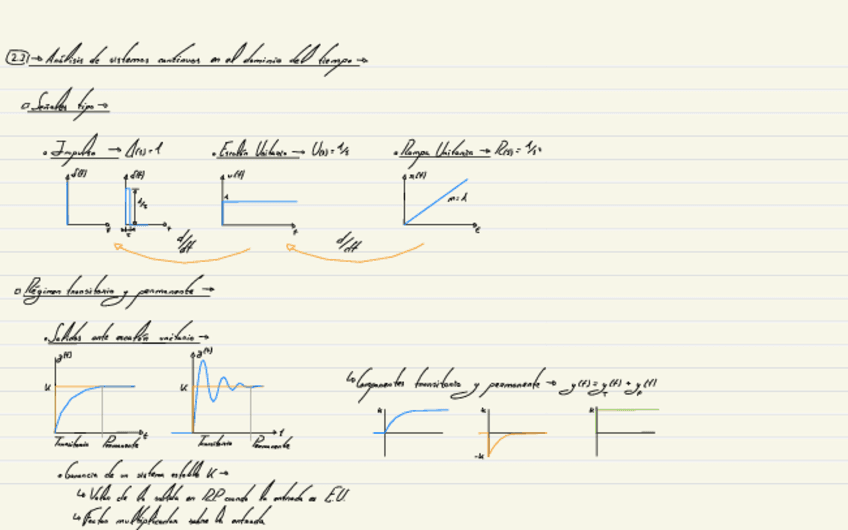 2.2 → Análisis de sistemas continuos en el dominio del tiempo →
Señales tipo →
• Impulso → Δ(s)=1 • Escalón Unitario → U(s)=1/s • Rampa Unitaria → R(s)=1/s²
δ(t) δ(t) u(t) r(t)
1/ε 1 m=1
t t t t
ε
d/dt d/dt
Régimen transitorio y permanente →
• Salidas ante escalón unitario →
y(t) y(t)
↳ Componentes transitoria y permanente → y(t) = y_T(t) + y_P(t)
K K K K K
-K
t t
Transitorio Permanente Transitorio Permanente
• Ganancia de un sistema estable K →
↳ Valor de la salida en R.P. cuando la entrada es E.U.
↳ Factor multiplicador sobre la entrada